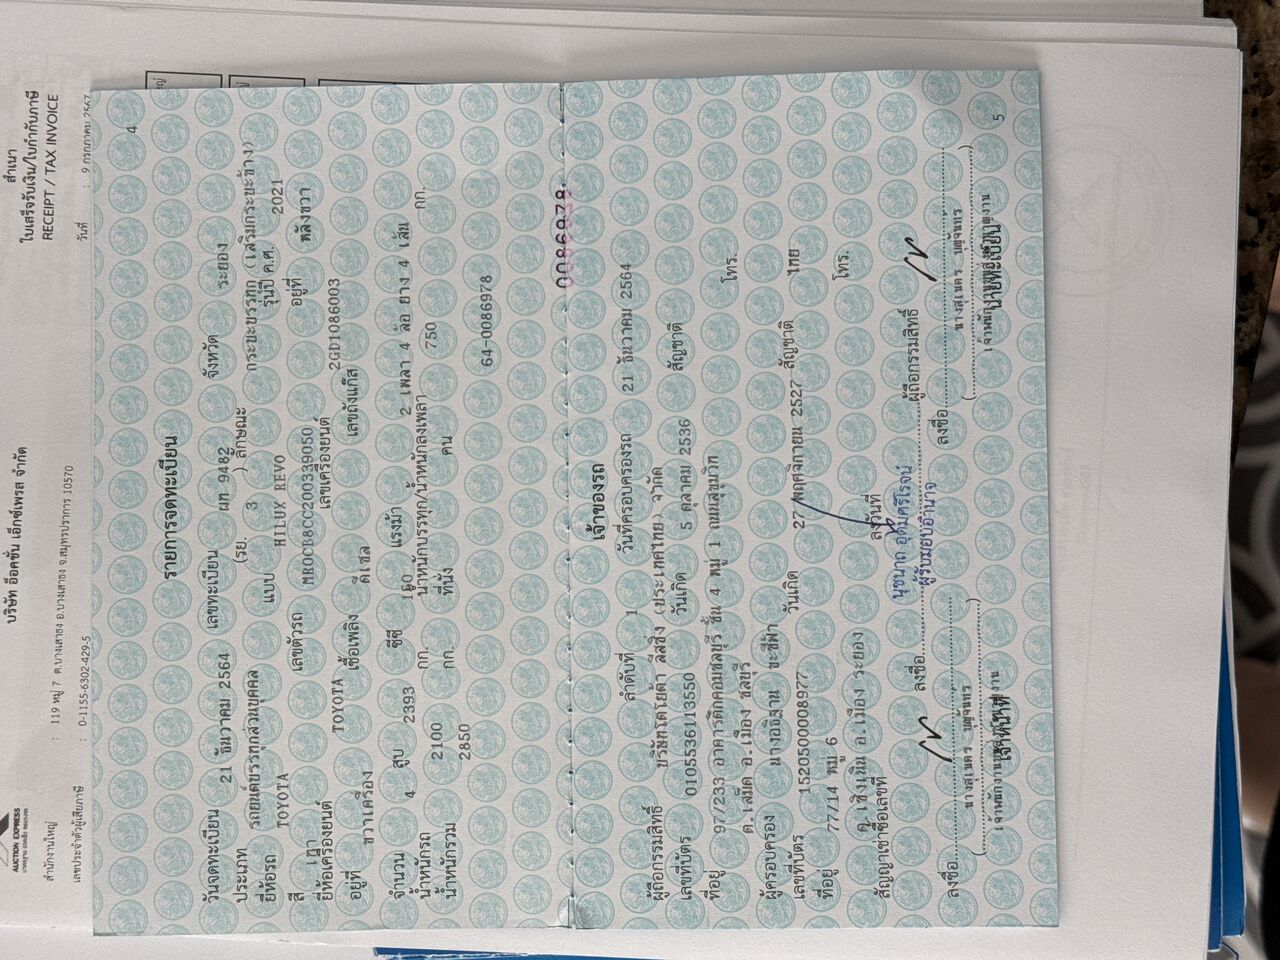 สำเนา
ใบเสร็จรับเงิน/ใบกำกับภาษี
RECEIPT / TAX INVOICE
บริษัท อ๊อคชั่น เอ็กซ์เพรส จำกัด
AUCTION EXPRESS
สำนักงานใหญ่ : 119 หมู่ 7 ต.บางเสาธง อ.บางเสาธง จ.สมุทรปราการ 10570
เลขประจำตัวผู้เสียภาษี : 0-1155-6302-429-5 วันที่ : 9 กรกฎาคม 2567
4
รายการจดทะเบียน
วันจดทะเบียน 21 ธันวาคม 2564 เลขทะเบียน ผท 9482 จังหวัด ระยอง
ประเภท รถยนต์บรรทุกส่วนบุคคล (รย. 3 ) ลักษณะ กระบะบรรทุก (เสริมกระบะข้าง)
ยี่ห้อรถ TOYOTA แบบ HILUX REVO รุ่นปี ค.ศ. 2021
สี เทา เลขตัวรถ MR0CB8CC200339050 อยู่ที่ หลังขวา
ยี่ห้อเครื่องยนต์ TOYOTA เลขเครื่องยนต์ 2GD1086003
อยู่ที่ ขวาเครื่อง เชื้อเพลิง ดีเซล เลขถังแก๊ส
จำนวน 4 สูบ 2393 ซีซี 160 แรงม้า 2 เพลา 4 ล้อ ยาง 4 เส้น
น้ำหนักรถ 2100 กก. น้ำหนักบรรทุก/น้ำหนักลงเพลา 750 กก.
น้ำหนักรวม 2850 กก. ที่นั่ง คน
64-0086978
0086978
เจ้าของรถ
ลำดับที่ 1 วันที่ครอบครองรถ 21 ธันวาคม 2564
ผู้ถือกรรมสิทธิ์ บริษัทโตโยต้า ลีสซิ่ง (ประเทศไทย) จำกัด
เลขที่บัตร 0105536113550 วันเกิด 5 ตุลาคม 2536 สัญชาติ
ที่อยู่ 97/233 อาคารดิกคอมชลบุรี ชั้น 4 หมู่ 1 ถนนสุขุมวิท
ต.เสม็ด อ.เมือง ชลบุรี โทร.
ผู้ครอบครอง นางอธิฐาน ขะซีฟ้า
เลขที่บัตร 1520500008977 วันเกิด 27 พฤศจิกายน 2527 สัญชาติ ไทย
ที่อยู่ 77/14 หมู่ 6
ต.เชิงเนิน อ.เมือง ระยอง โทร.
สัญญาเช่าซื้อเลขที่ ลงวันที่
นุชนาถ อุดมศรีโรจน์
ผู้รับมอบอำนาจ
ลงชื่อ ผู้ถือกรรมสิทธิ์
ลงชื่อ ลงชื่อ
นางสุเนตร บุญจันทร นางสุเนตร บุญจันทร
เจ้าพนักงานขนส่งชำนาญงาน เจ้าพนักงานขนส่งชำนาญงาน
เจ้าหน้าที่ นายทะเบียน
5